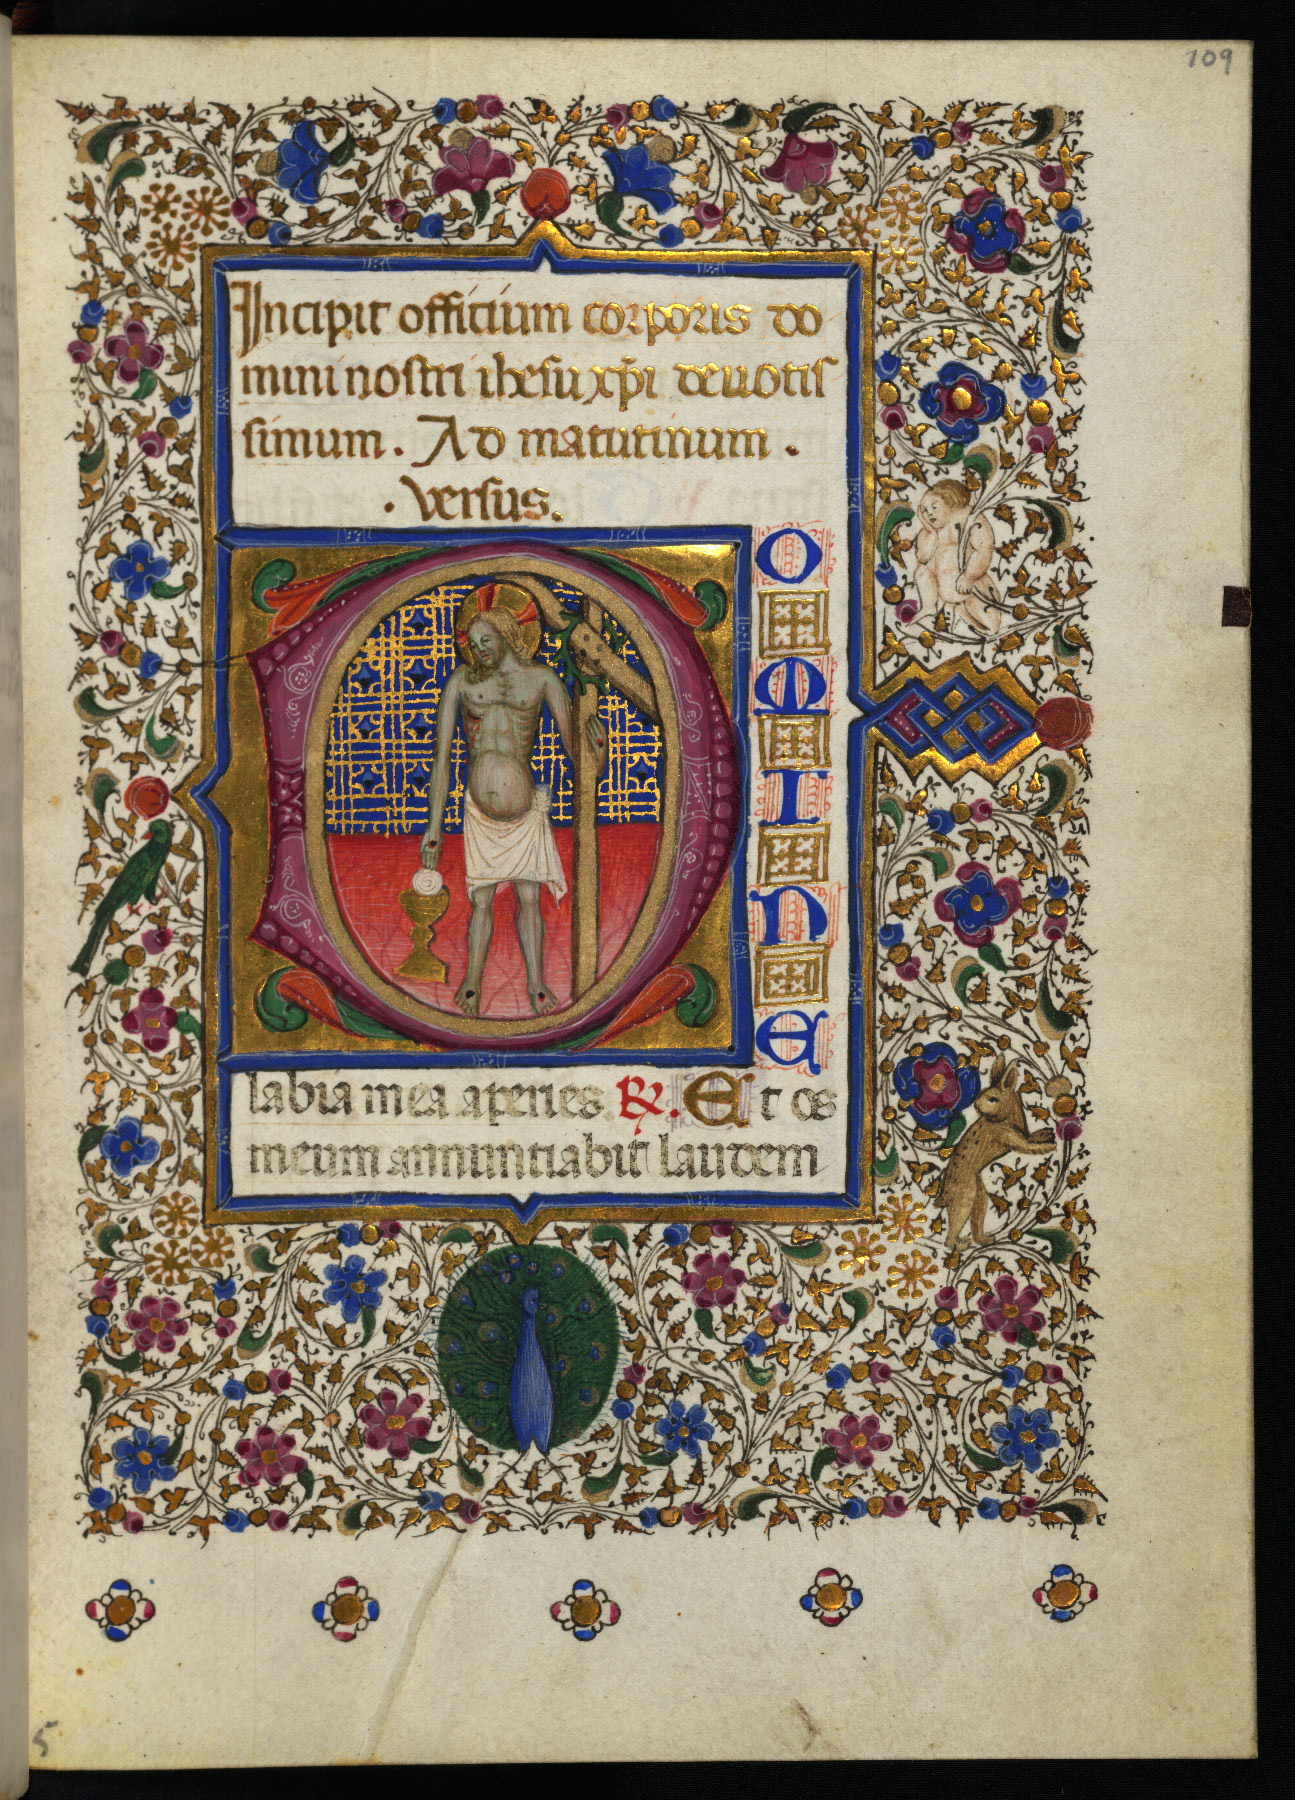 109
Incipit officium corporis do
mini nostri ihesu xpi deuotis
simum. Ad matutinum.
. versus.
D
O
M
I
N
E
labia mea aperies. R. Et os
meum annuntiabit laudem
5